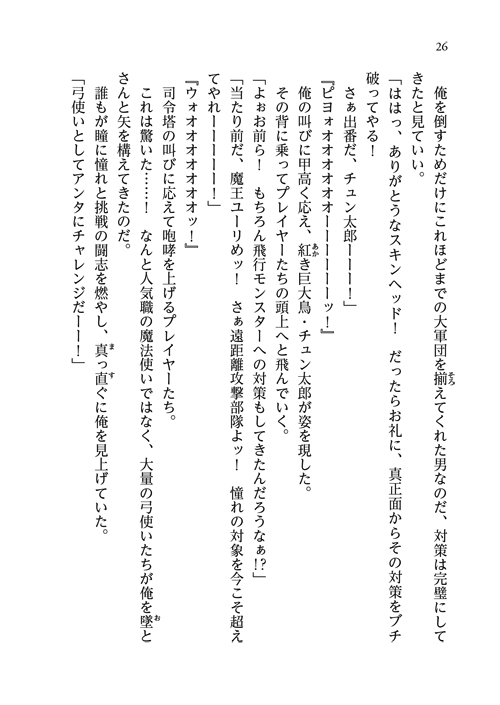 26
俺を倒すためだけにこれほどまでの大軍団を揃えてくれた男なのだ、対策は完璧にして
きたと見ていい。
「ははっ、ありがとうなスキンヘッド！　だったらお礼に、真正面からその対策をブチ
破ってやる！
さぁ出番だ、チュン太郎ーーー！」
『ピヨォオオオオオオーーーーーーッ！』
俺の叫びに甲高く応え、紅き巨大鳥・チュン太郎が姿を現した。
その背に乗ってプレイヤーたちの頭上へと飛んでいく。
「よぉお前ら！　もちろん飛行モンスターへの対策もしてきたんだろうなぁ!?」
「当たり前だ、魔王ユーリめッ！　さぁ遠距離攻撃部隊よッ！　憧れの対象を今こそ超え
てやれーーーーー！」
『ウォオオオオオオオッ！』
司令塔の叫びに応えて咆哮を上げるプレイヤーたち。
これは驚いた……！　なんと人気職の魔法使いではなく、大量の弓使いたちが俺を墜と
さんと矢を構えてきたのだ。
誰もが瞳に憧れと挑戦の闘志を燃やし、真っ直ぐに俺を見上げていた。
「弓使いとしてアンタにチャレンジだーー！」